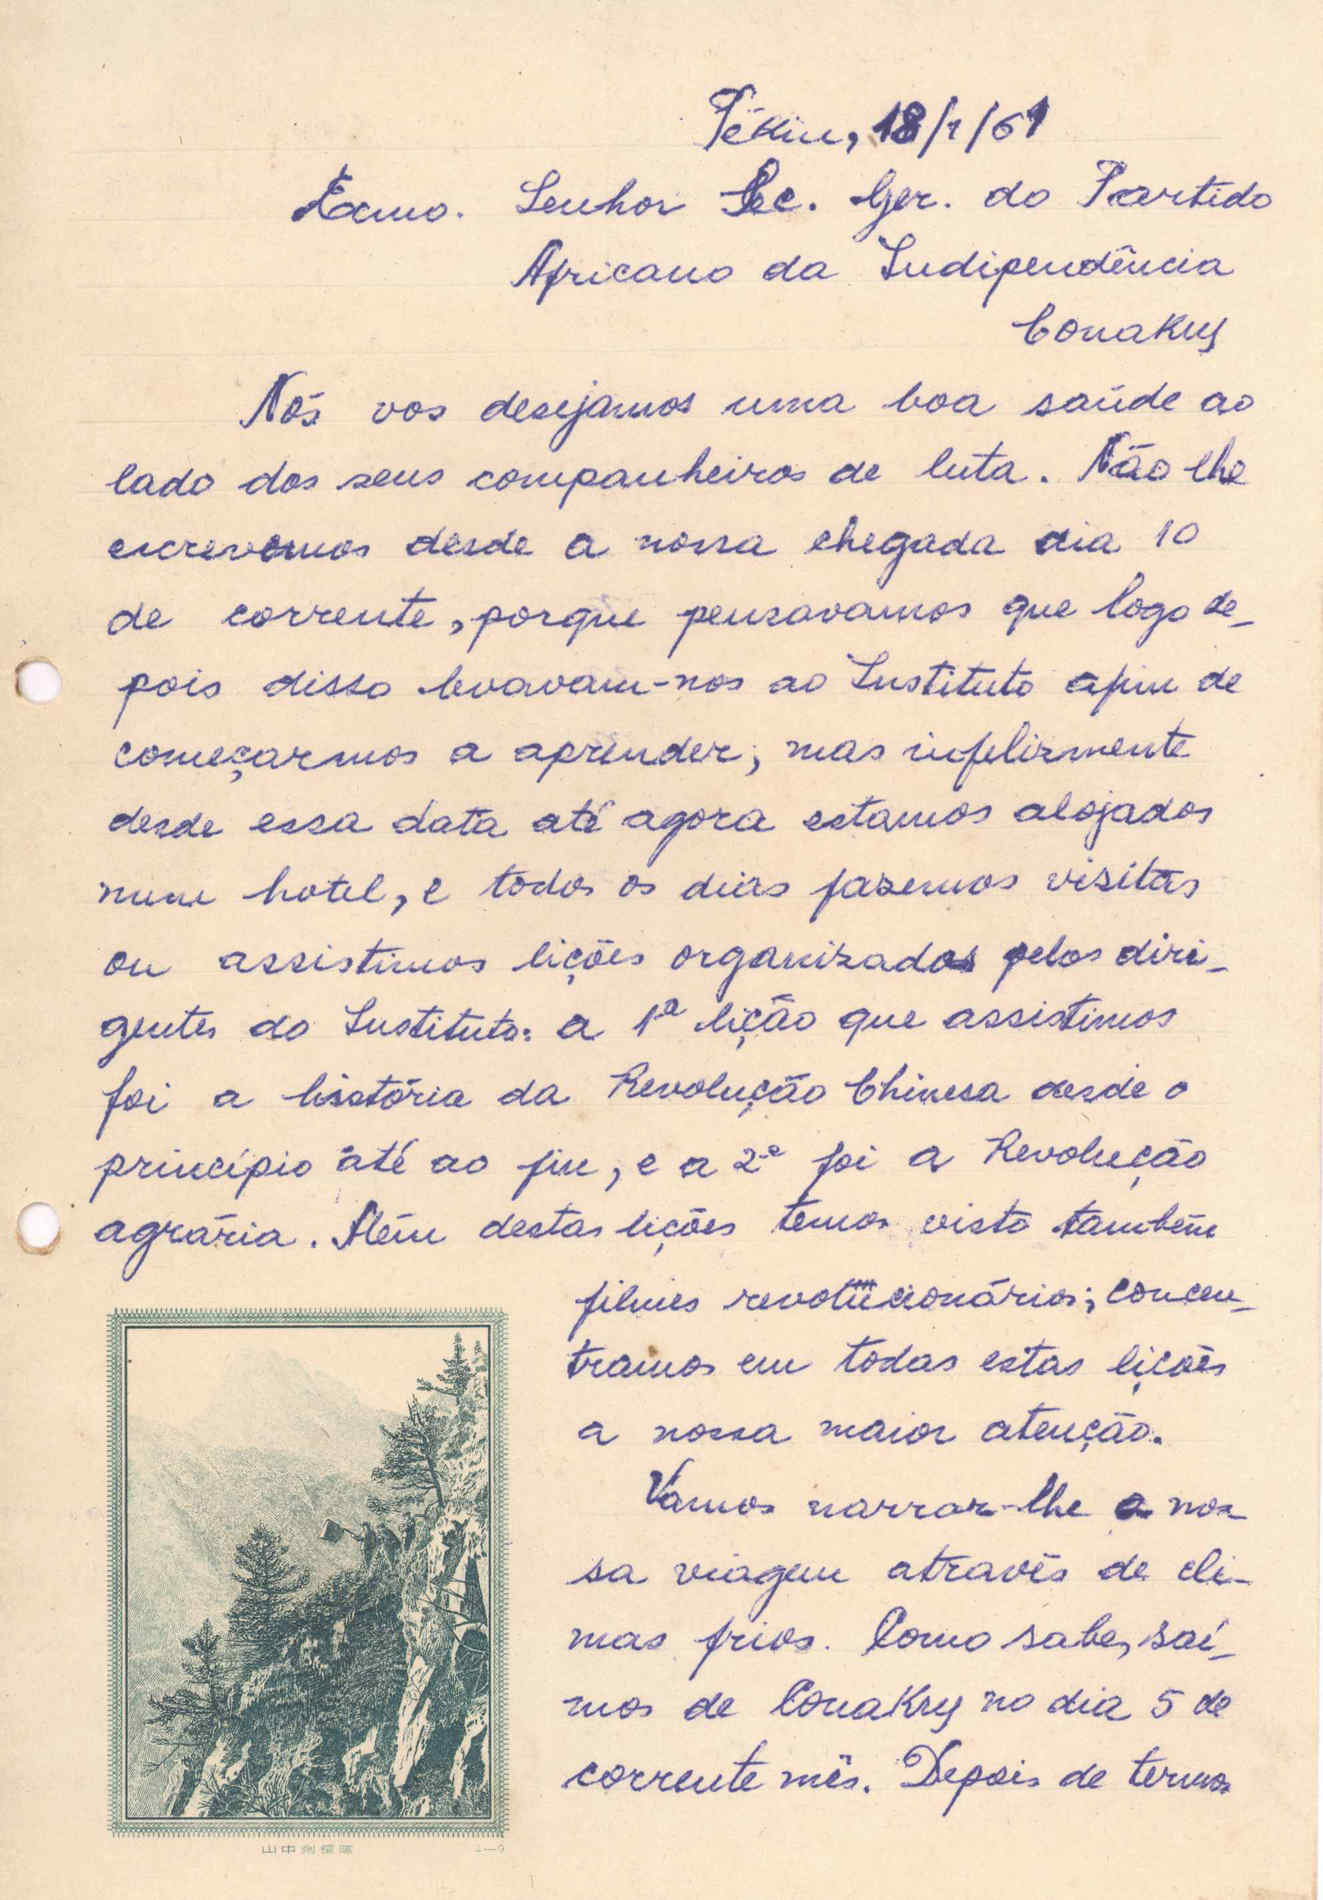 Pékin, 18/1/61
Exmo. Senhor Sec. Ger. do Partido
Africano da Indipendência
Conakry
Nós vos desejamos uma boa saúde ao
lado dos seus companheiros de luta. Não lhe
escrevemos desde a nossa chegada dia 10
de corrente, porque pensavamos que logo de_
pois disso levavam-nos ao Instituto afim de
começarmos a aprender, mas infelizmente
desde essa data até agora estamos alojados
num hotel, e todos os dias fazemos visitas
ou assistimos lições organizadas pelos diri_
gentes do Instituto: a 1ª lição que assistimos
foi a história da Revolução Chinesa desde o
princípio até ao fim, e a 2ª foi a Revolução
agrária. Além destas lições temos visto também
filmes revolucionários; concen_
tramos em todas estas lições
a nossa maior atenção.
Vamos narrar-lhe a nos
sa viagem através de cli_
mas frios. Como sabe, saí_
mos de Conakry no dia 5 de
corrente mês. Depois de termos
山中
1—9